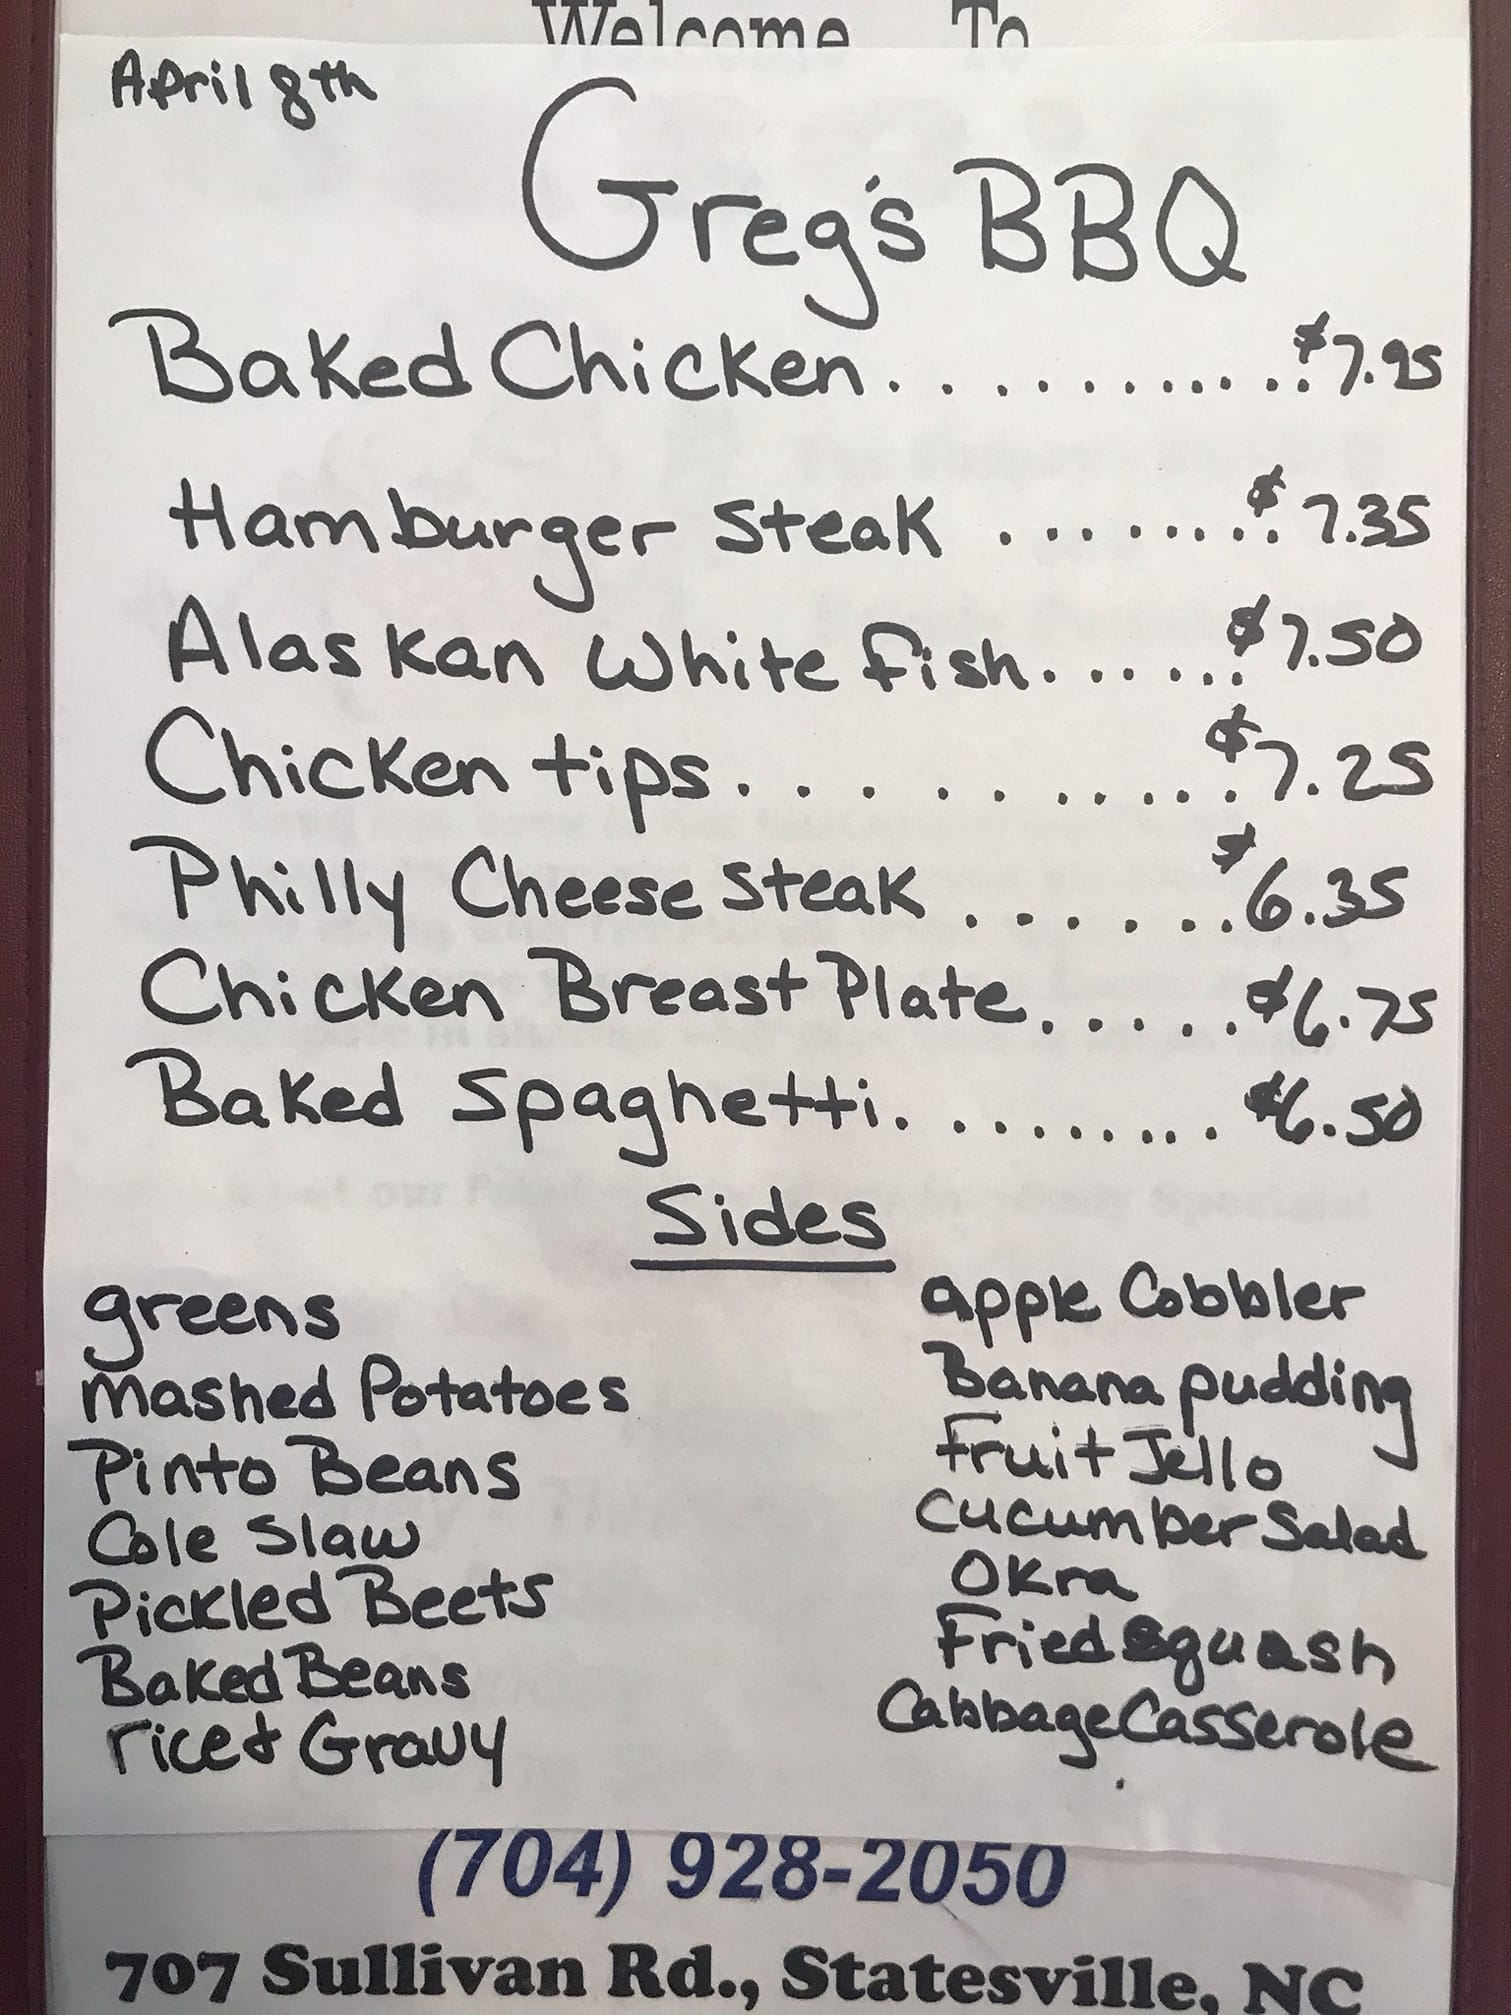 Welcome To
April 8th
Greg's BBQ
Baked Chicken........... $7.95
Hamburger Steak ......... $7.35
Alaskan White fish....... $7.50
Chicken tips........... $7.25
Philly Cheese steak ....... $6.35
Chicken Breast Plate...... $6.75
Baked Spaghetti......... $6.50
Sides
greens
mashed Potatoes
Pinto Beans
Cole Slaw
Pickled Beets
Baked Beans
rice & Gravy
apple Cobbler
Banana pudding
Fruit Jello
Cucumber Salad
Okra
Fried squash
Cabbage Casserole
(704) 928-2050
707 Sullivan Rd., Statesville, NC